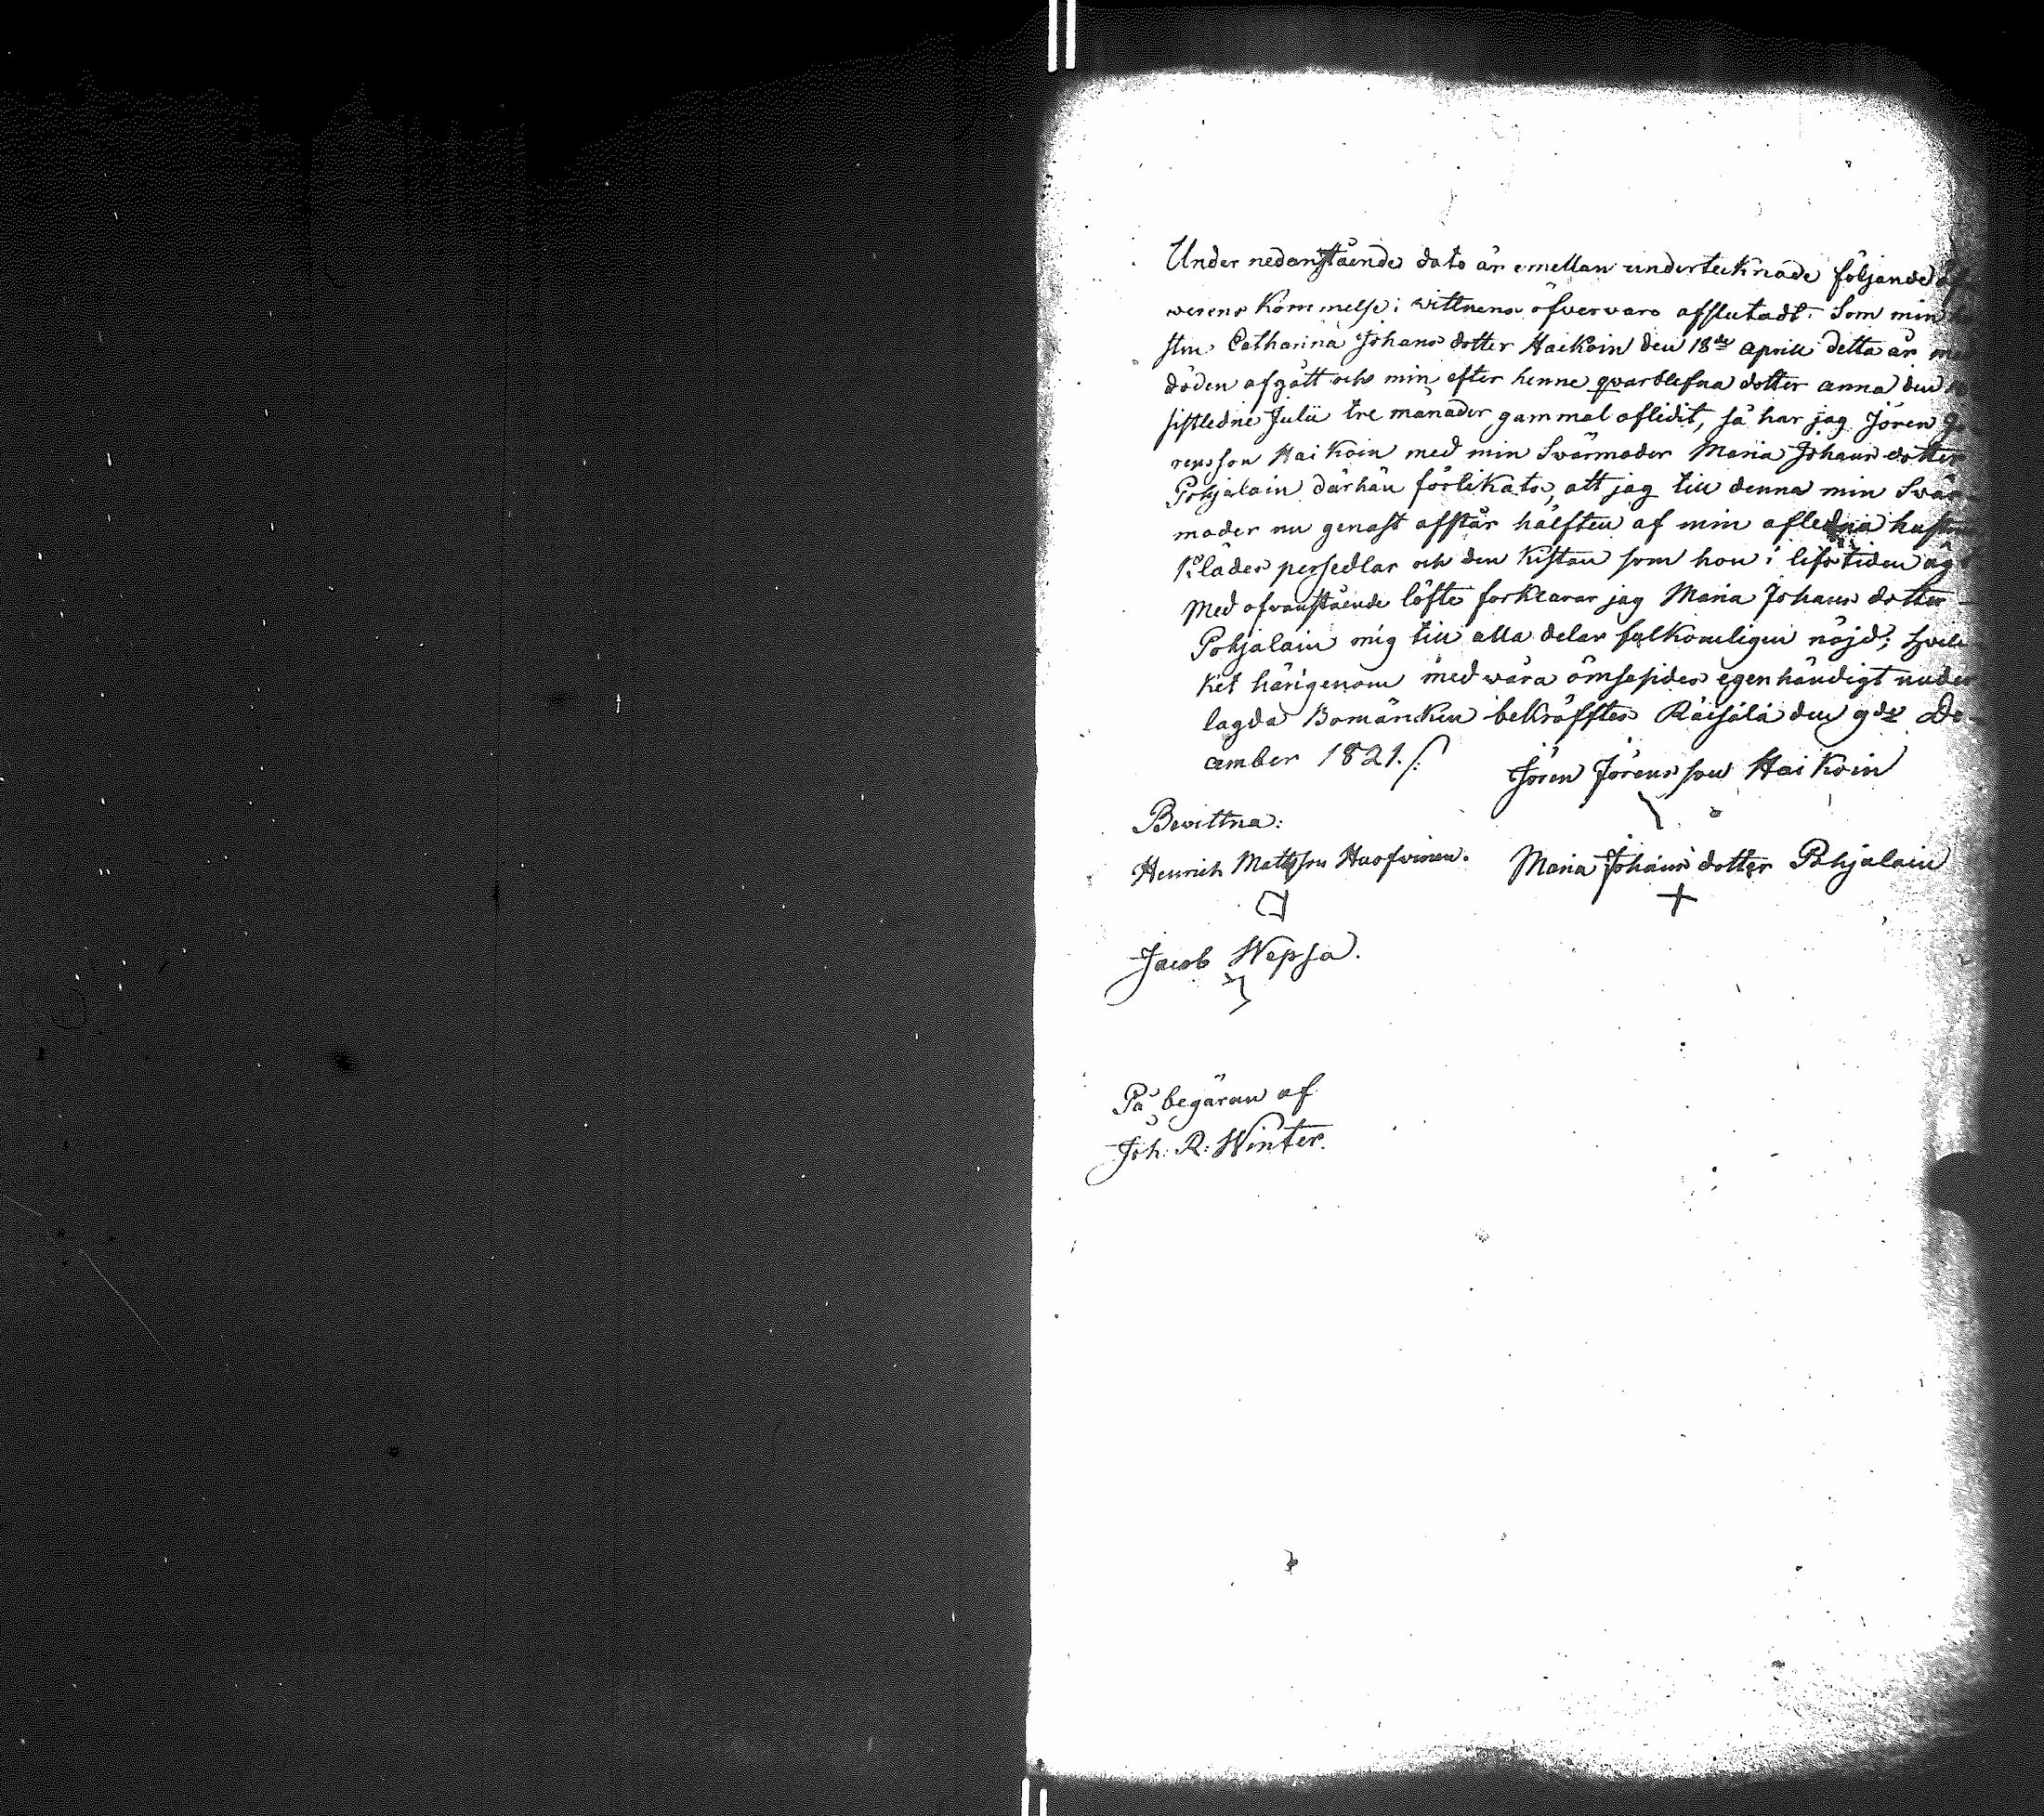 Under nedanstående dato är emellan undertecknade följande öf
werens kommelse i wittnens öfvervaro afslutadt. Som min
stru Catharina Johans dotter Haikoin den 18de aprill detta år med
döden afgått och min efter henne qvarblefna dotter anna den
sistledne Julii tre månader gammal aflidit, så har jag Jören Jö
rensson Haikoin med min Swärmoder Maria Johans dotter
Pohjalain därhän förlikats, att jag till denna min Swär-
moder nu genast afstår hälften af min afledna hustrus
klädes persedlar och den kistan som hon i lifstiden ägt
Med ofvanstående löfte forklarar jag Maria Johans dotter
Pohjalain mig till alla delar fulkomligen nöjd; hvil-
ket härigenom med wåra ömsesides egenhändigt under
lagda Bomärken bekräfftes Räisälä den 9de De-
cember 1821.
Jören Jörensson Haikoin
Bevittna:
Henrich Mattsson
Maria Johans dotter Pohjalain
Jacob Wepsä.
På begäran af
Joh: R: Winter.